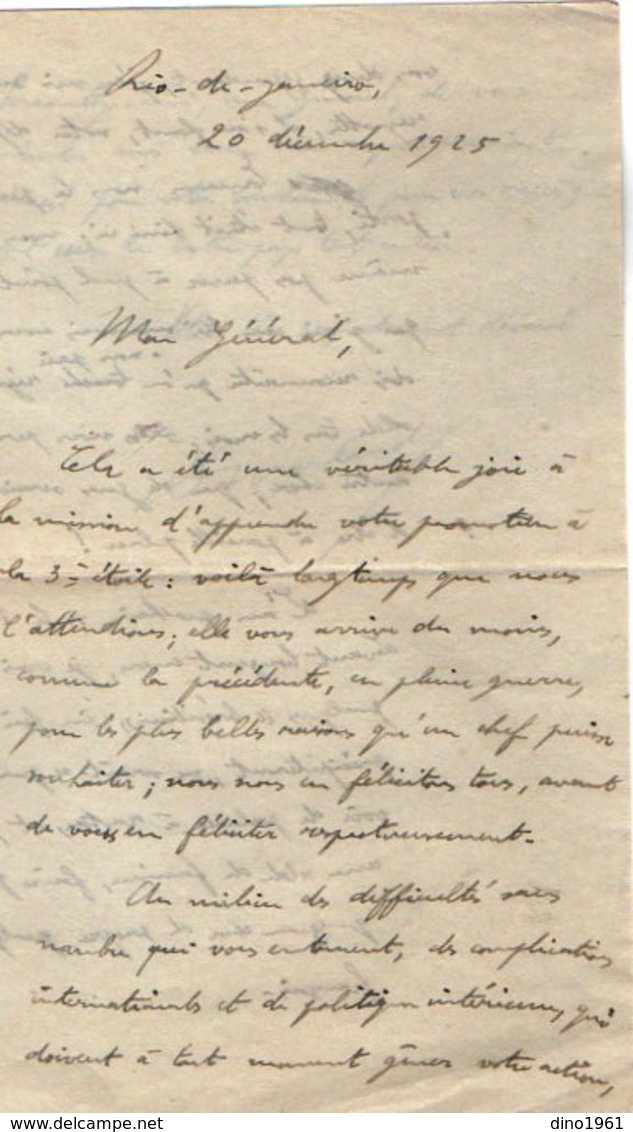 Rio-de-Janeiro,
20 décembre 1925
Mon Général,
Cela a été une véritable joie à
la mission d'apprendre votre promotion à
la 3e étoile : voilà longtemps que nous
l'attendions ; elle vous arrive du moins,
comme la précédente, en pleine guerre,
pour les plus belles raisons qu'un chef puisse
souhaiter ; nous nous en félicitons tous, avant
de vous en féliciter respectueusement.
Au milieu des difficultés sans
nombre qui vous entourent, des complications
internationales et de politique intérieure, qui
doivent à tout moment gêner votre action,
dino1961